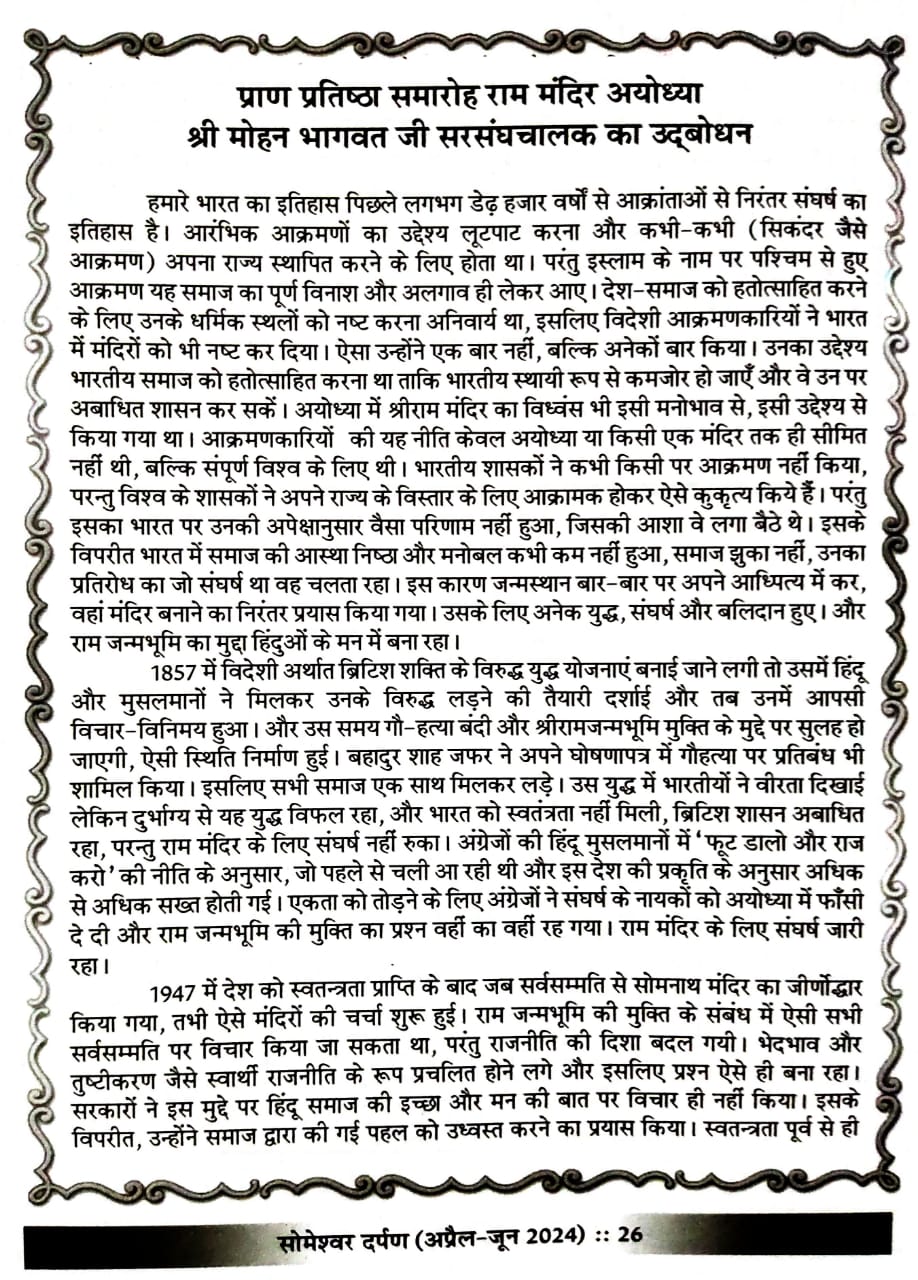 प्राण प्रतिष्ठा समारोह राम मंदिर अयोध्या
श्री मोहन भागवत जी सरसंघचालक का उद्‌बोधन
हमारे भारत का इतिहास पिछले लगभग डेढ़ हजार वर्षों से आक्रांताओं से निरंतर संघर्ष का
इतिहास है। आरंभिक आक्रमणों का उद्देश्य लूटपाट करना और कभी-कभी (सिकंदर जैसे
आक्रमण) अपना राज्य स्थापित करने के लिए होता था। परंतु इस्लाम के नाम पर पश्चिम से हुए
आक्रमण यह समाज का पूर्ण विनाश और अलगाव ही लेकर आए। देश-समाज को हतोत्साहित करने
के लिए उनके धर्मिक स्थलों को नष्ट करना अनिवार्य था, इसलिए विदेशी आक्रमणकारियों ने भारत
में मंदिरों को भी नष्ट कर दिया। ऐसा उन्होंने एक बार नहीं, बल्कि अनेकों बार किया। उनका उद्देश्य
भारतीय समाज को हतोत्साहित करना था ताकि भारतीय स्थायी रूप से कमजोर हो जाएँ और वे उन पर
अबाधित शासन कर सकें। अयोध्या में श्रीराम मंदिर का विध्वंस भी इसी मनोभाव से, इसी उद्देश्य से
किया गया था। आक्रमणकारियों की यह नीति केवल अयोध्या या किसी एक मंदिर तक ही सीमित
नहीं थी, बल्कि संपूर्ण विश्व के लिए थी। भारतीय शासकों ने कभी किसी पर आक्रमण नहीं किया,
परन्तु विश्व के शासकों ने अपने राज्य के विस्तार के लिए आक्रामक होकर ऐसे कुकृत्य किये हैं। परंतु
इसका भारत पर उनकी अपेक्षानुसार वैसा परिणाम नहीं हुआ, जिसकी आशा वे लगा बैठे थे। इसके
विपरीत भारत में समाज की आस्था निष्ठा और मनोबल कभी कम नहीं हुआ, समाज झुका नहीं, उनका
प्रतिरोध का जो संघर्ष था वह चलता रहा। इस कारण जन्मस्थान बार-बार पर अपने आध्पित्य में कर,
वहां मंदिर बनाने का निरंतर प्रयास किया गया। उसके लिए अनेक युद्ध, संघर्ष और बलिदान हुए। और
राम जन्मभूमि का मुद्दा हिंदुओं के मन में बना रहा।
1857 में विदेशी अर्थात ब्रिटिश शक्ति के विरुद्ध युद्ध योजनाएं बनाई जाने लगी तो उसमें हिंदू
और मुसलमानों ने मिलकर उनके विरुद्ध लड़ने की तैयारी दर्शाई और तब उनमें आपसी
विचार-विनिमय हुआ। और उस समय गौ-हत्या बंदी और श्रीरामजन्मभूमि मुक्ति के मुद्दे पर सुलह हो
जाएगी, ऐसी स्थिति निर्माण हुई। बहादुर शाह जफर ने अपने घोषणापत्र में गौहत्या पर प्रतिबंध भी
शामिल किया। इसलिए सभी समाज एक साथ मिलकर लड़े। उस युद्ध में भारतीयों ने वीरता दिखाई
लेकिन दुर्भाग्य से यह युद्ध विफल रहा, और भारत को स्वतंत्रता नहीं मिली, ब्रिटिश शासन अबाधित
रहा, परन्तु राम मंदिर के लिए संघर्ष नहीं रुका। अंग्रेजों की हिंदू मुसलमानों में 'फूट डालो और राज
करो' की नीति के अनुसार, जो पहले से चली आ रही थी और इस देश की प्रकृति के अनुसार अधिक
से अधिक सख्त होती गई। एकता को तोड़ने के लिए अंग्रेजों ने संघर्ष के नायकों को अयोध्या में फाँसी
दे दी और राम जन्मभूमि की मुक्ति का प्रश्न वहीं का वहीं रह गया। राम मंदिर के लिए संघर्ष जारी
रहा।
1947 में देश को स्वतन्त्रता प्राप्ति के बाद जब सर्वसम्मति से सोमनाथ मंदिर का जीर्णोद्धार
किया गया, तभी ऐसे मंदिरों की चर्चा शुरू हुई। राम जन्मभूमि की मुक्ति के संबंध में ऐसी सभी
सर्वसम्मति पर विचार किया जा सकता था, परंतु राजनीति की दिशा बदल गयी। भेदभाव और
तुष्टीकरण जैसे स्वार्थी राजनीति के रूप प्रचलित होने लगे और इसलिए प्रश्न ऐसे ही बना रहा।
सरकारों ने इस मुद्दे पर हिंदू समाज की इच्छा और मन की बात पर विचार ही नहीं किया। इसके
विपरीत, उन्होंने समाज द्वारा की गई पहल को उध्वस्त करने का प्रयास किया। स्वतन्त्रता पूर्व से ही
सोमेश्वर दर्पण (अप्रैल-जून 2024) :: 26